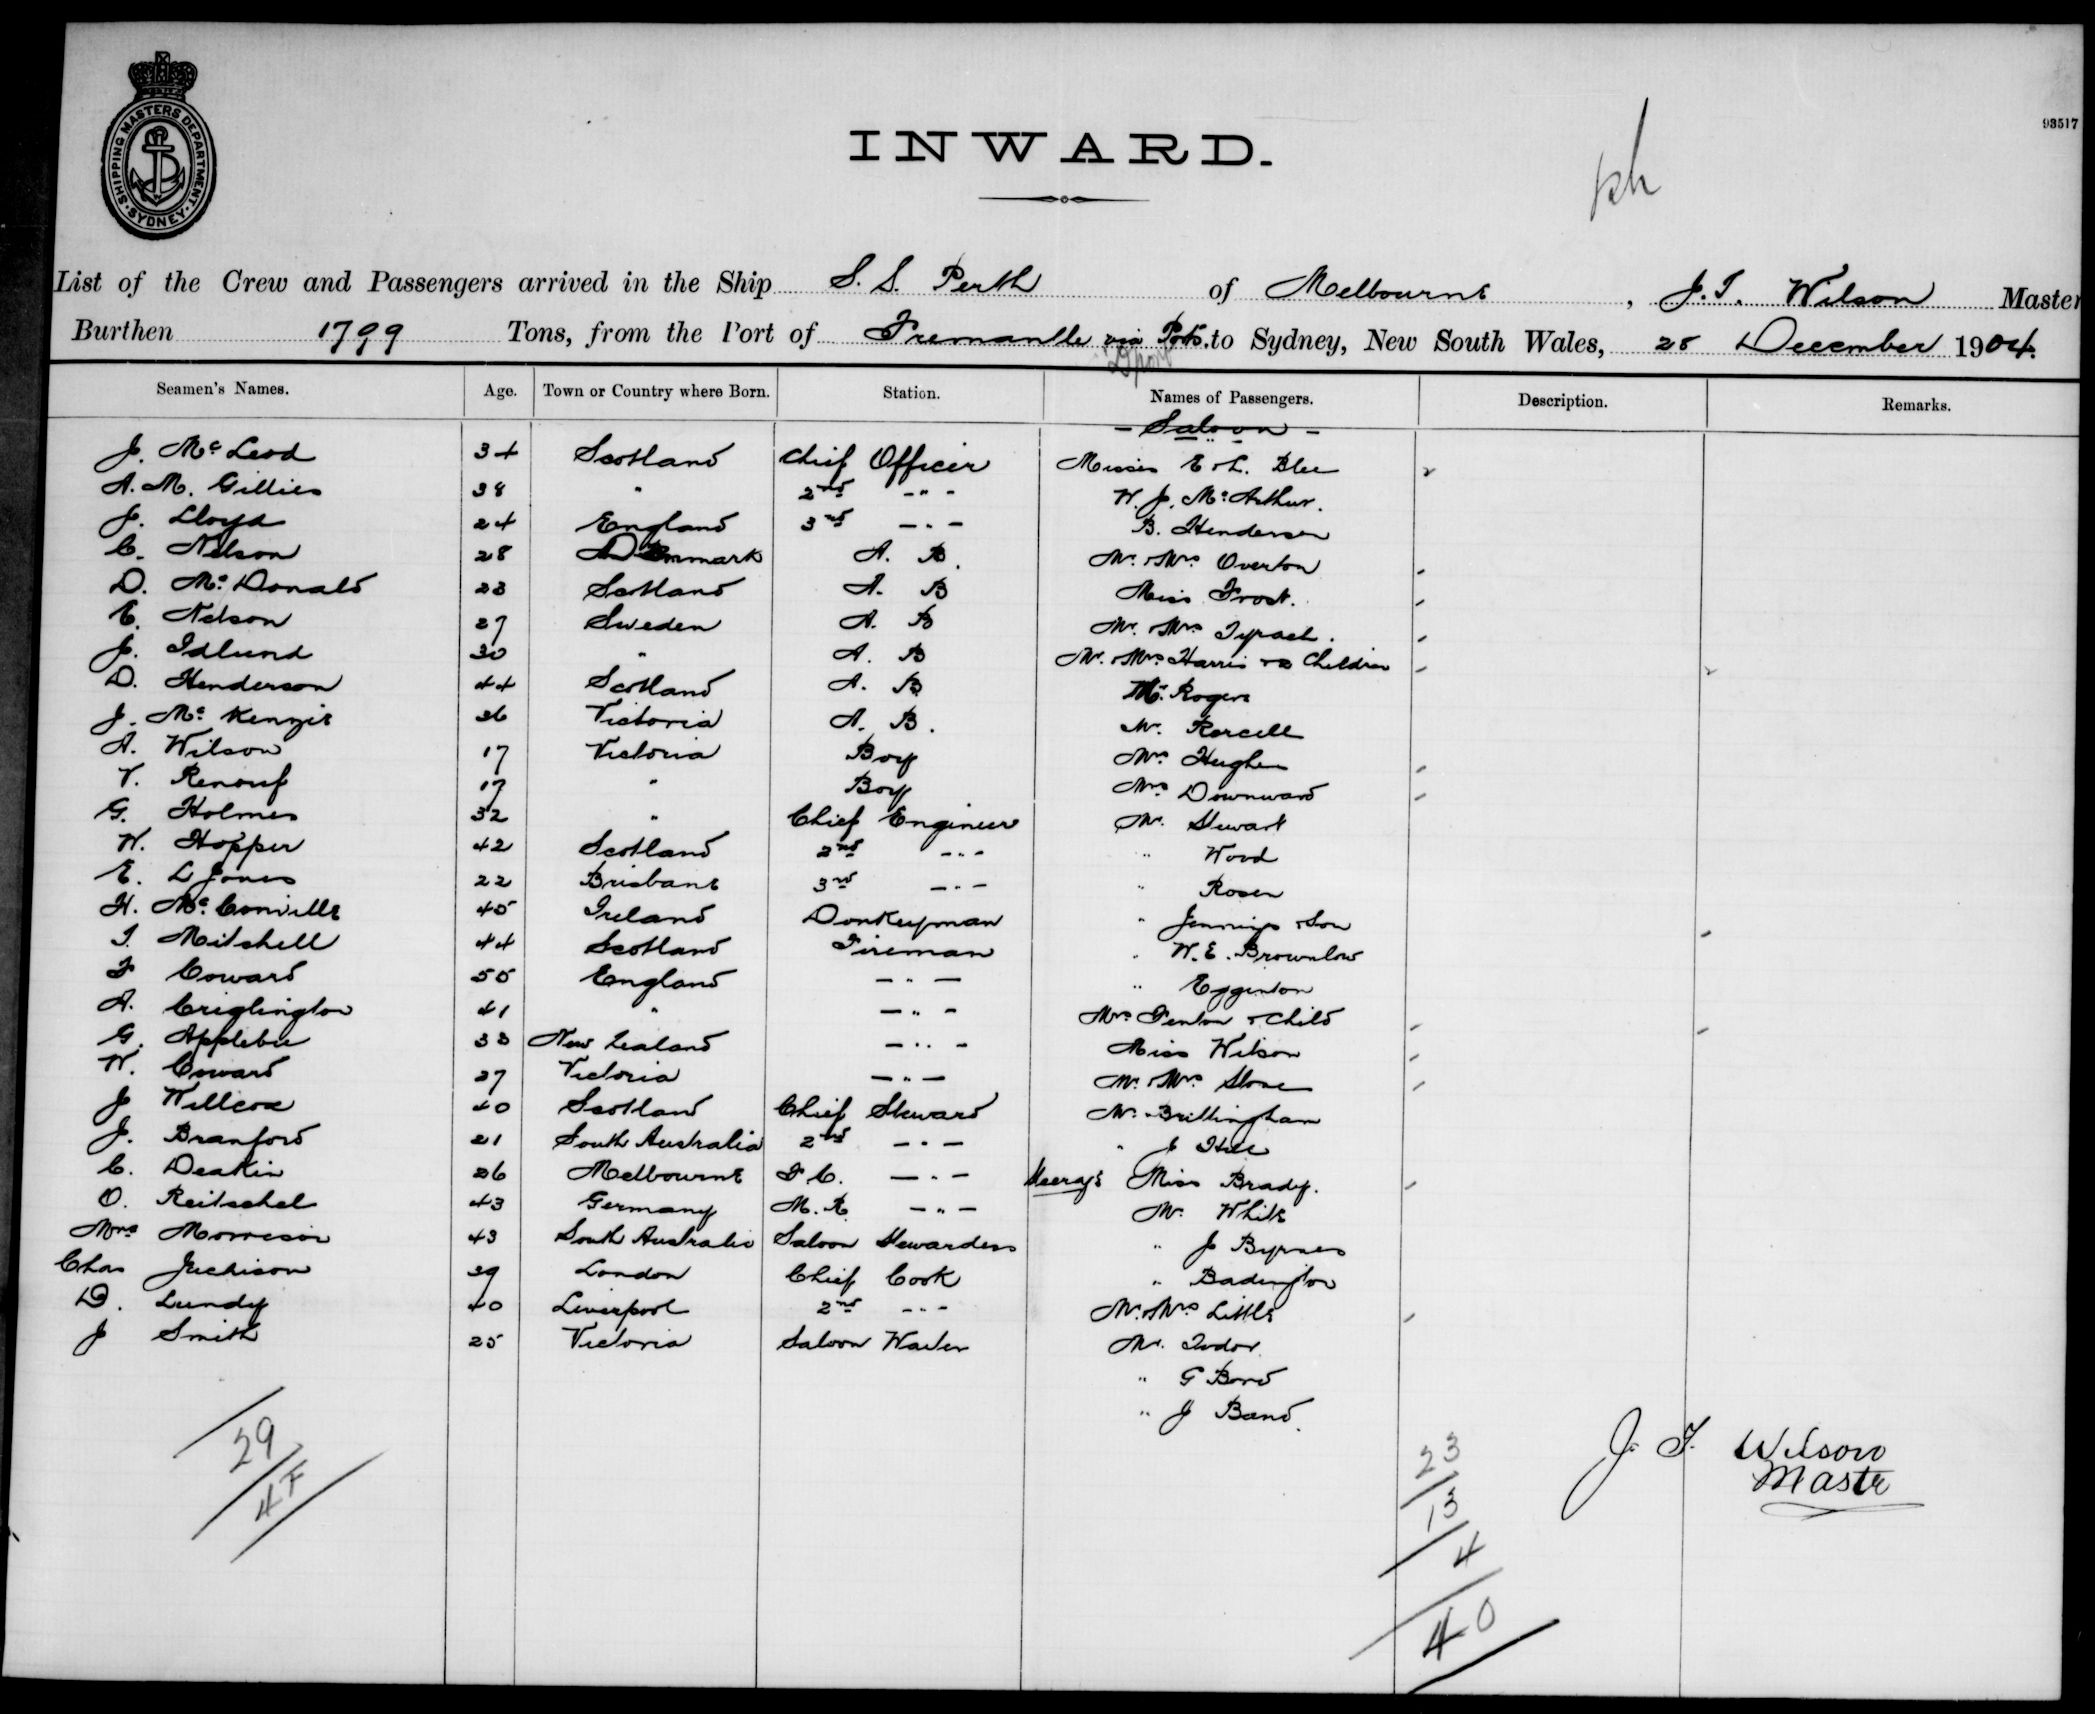 SHIPPING MASTERS DEPARTMENT · SYDNEY ·
93517
INWARD.
List of the Crew and Passengers arrived in the Ship S. S. Perth of Melbourne, J. T. Wilson Master
Burthen 1799 Tons, from the Port of Fremantle via Ports. to Sydney, New South Wales, 28 December 1904.
Seamen's Names. Age. Town or Country where Born. Station. Names of Passengers. Description. Remarks.
- Saloon -
J. McLeod 34 Scotland Chief Officer Misses E & L. Blee 2
A. M. Gillies 38 " 2nd - " - W. J. McArthur.
J. Lloyd 24 England 3rd - " - B. Henderson
C. Nelson 28 Denmark A. B. Mr. & Mrs Overton
D. McDonald 23 Scotland A. B Miss Frost.
E. Nelson 27 Sweden A. B Mr. & Mrs
J. Idlund 30 " A. B Mr. & Mrs Harris & 2 Children 2
D. Henderson 44 Scotland A. B Mr. Rogers
J. McKenzie 36 Victoria A. B. Mr.
A. Wilson 17 Victoria Boy Mrs Hughes
V. Renouf 17 " Boy Mrs Downward
G. Holmes 32 " Chief Engineer Mr. Stewart
W. Hopper 42 Scotland 2nd - " - " Wood
E. L Jones 22 Brisbane 3rd - " - " Rosen
H. McConville 45 Ireland Donkeyman " Jennings & Son
T. Mitchell 44 Scotland Fireman " W. E. Brownlow
F Coward 55 England - " - " Egginton
A. Criglington 41 " - " - Mrs Fenton & Child
G. Applebee 33 New Zealand - " - Miss Wilson
W. Coward 27 Victoria - " - Mr. & Mrs Stone
J Willcox 40 Scotland Chief Steward Mr. Brittingham
J. Branford 21 South Australia 2nd - " - " J Hill
C. Deakin 26 Melbourne F C. - " - Steerage Miss Brady.
O. Reitschel 43 Germany M. R. - " - Mr. White
Mrs Morrison 43 South Australia Saloon Stewardess " J Byrnes
Chas 39 London Chief Cook " Badington
D. Lundy 40 Liverpool 2nd - " - Mr. & Mrs Little
J Smith 25 Victoria Saloon Waiter Mr. Tudor
" G Bond
" J Band.
29
4F
23
13
4
40
J. T. Wilson
Master